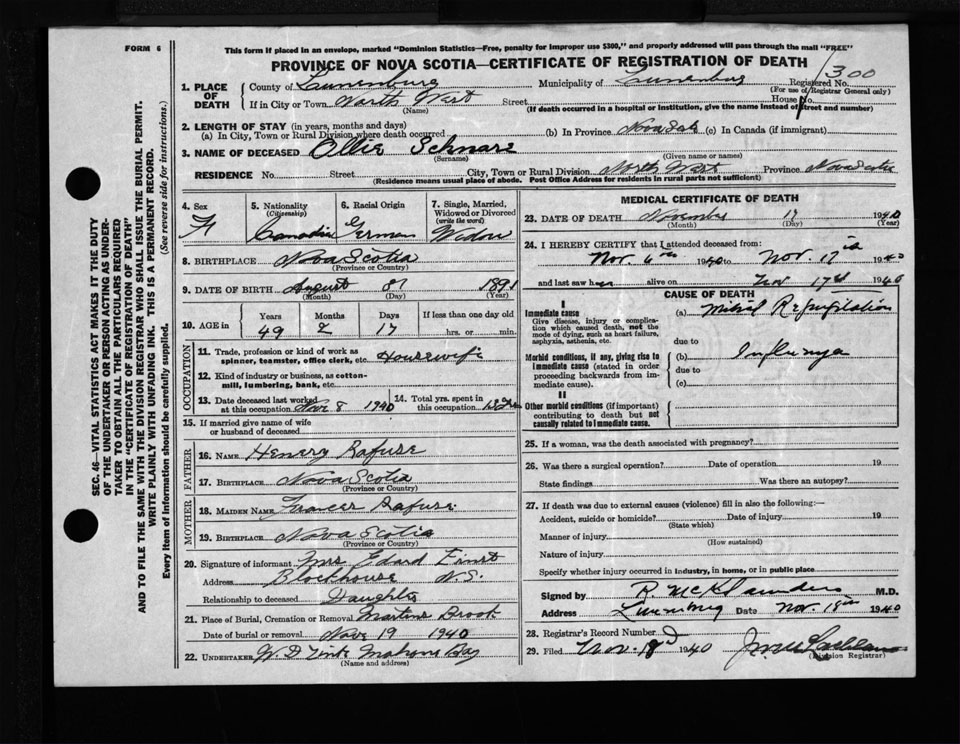 FORM 6
This form if placed in an envelope, marked "Dominion Statistics—Free, penalty for improper use $300," and properly addressed will pass through the mail "FREE"
PROVINCE OF NOVA SCOTIA—CERTIFICATE OF REGISTRATION OF DEATH
1. PLACE OF DEATH
County of Lunenburg Municipality of Lunenburg Registered No. 300
(For use of Registrar General only)
If in City or Town North West Street House
(Name) (If death occurred in a hospital or institution, give the name instead of street and number)
2. LENGTH OF STAY (in years, months and days)
(a) In City, Town or Rural Division where death occurred (b) In Province (c) In Canada (if immigrant)
3. NAME OF DECEASED Ollie Schnare
(Surname) (Given name or names)
RESIDENCE No. Street City, Town or Rural Division North West Province Nova Scotia
(Residence means usual place of abode. Post Office Address for residents in rural parts not sufficient)
SEC. 46—VITAL STATISTICS ACT MAKES IT THE DUTY
OF THE UNDERTAKER OR PERSON ACTING AS UNDER-
TAKER TO OBTAIN ALL THE PARTICULARS REQUIRED
IN THE "CERTIFICATE OF REGISTRATION OF DEATH"
AND TO FILE THE SAME WITH THE DIVISION REGISTRAR WHO SHALL ISSUE THE BURIAL PERMIT.
WRITE PLAINLY WITH UNFADING INK. THIS IS A PERMANENT RECORD.
Every item of information should be carefully supplied. (See reverse side for instructions.)
4. Sex
F
5. Nationality
(Citizenship)
Canadian
6. Racial Origin
German
7. Single, Married, Widowed or Divorced
(write the word)
Widow
8. BIRTHPLACE Nova Scotia
(Province or Country)
9. DATE OF BIRTH August 1891
(Month) (Day) (Year)
10. AGE in Years Months Days If less than one day old
49 2 17 hrs. or min.
OCCUPATION
11. Trade, profession or kind of work as spinner, teamster, office clerk, etc. Housewife
12. Kind of industry or business, as cotton-mill, lumbering, bank, etc.
13. Date deceased last worked at this occupation Nov 8 1940
14. Total yrs. spent in this occupation
15. If married give name of wife or husband of deceased
FATHER
16. NAME Henery Rafuse
17. BIRTHPLACE Nova Scotia
(Province or Country)
MOTHER
18. MAIDEN NAME Frances Rafuse
19. BIRTHPLACE Nova Scotia
(Province or Country)
20. Signature of informant Mrs Edard Ernst
Address Blockhouse N.S.
Relationship to deceased Daughter
21. Place of Burial, Cremation or Removal Martins Brook
Date of burial or removal Nov 19 1940
22. UNDERTAKER W. D Zink Mahone Bay
(Name and address)
MEDICAL CERTIFICATE OF DEATH
23. DATE OF DEATH November 17 1940
(Month) (Day) (Year)
24. I HEREBY CERTIFY that I attended deceased from:
Nov. 6th 1940 to Nov. 17 1940
and last saw her alive on Nov 17th 1940
CAUSE OF DEATH
I
Immediate cause
Give disease, injury or complication which caused death, not the mode of dying, such as heart failure, asphyxia, asthenia, etc.
(a) Mitral Regurgitation
due to
Morbid conditions, if any, giving rise to immediate cause (stated in order proceeding backwards from immediate cause).
(b) Influenza
due to
(c)
II
Other morbid conditions (if important) contributing to death but not causally related to immediate cause.
25. If a woman, was the death associated with pregnancy?
26. Was there a surgical operation? Date of operation 19
State findings Was there an autopsy?
27. If death was due to external causes (violence) fill in also the following:—
Accident, suicide or homicide? Date of injury 19
(State which)
Manner of injury
(How sustained)
Nature of injury
Specify whether injury occurred in industry, in home, or in public place
Signed by R McK Saunders M.D.
Address Lunenburg Date Nov. 18th 1940
28. Registrar's Record Number
29. Filed Nov. 1940
(Division Registrar)